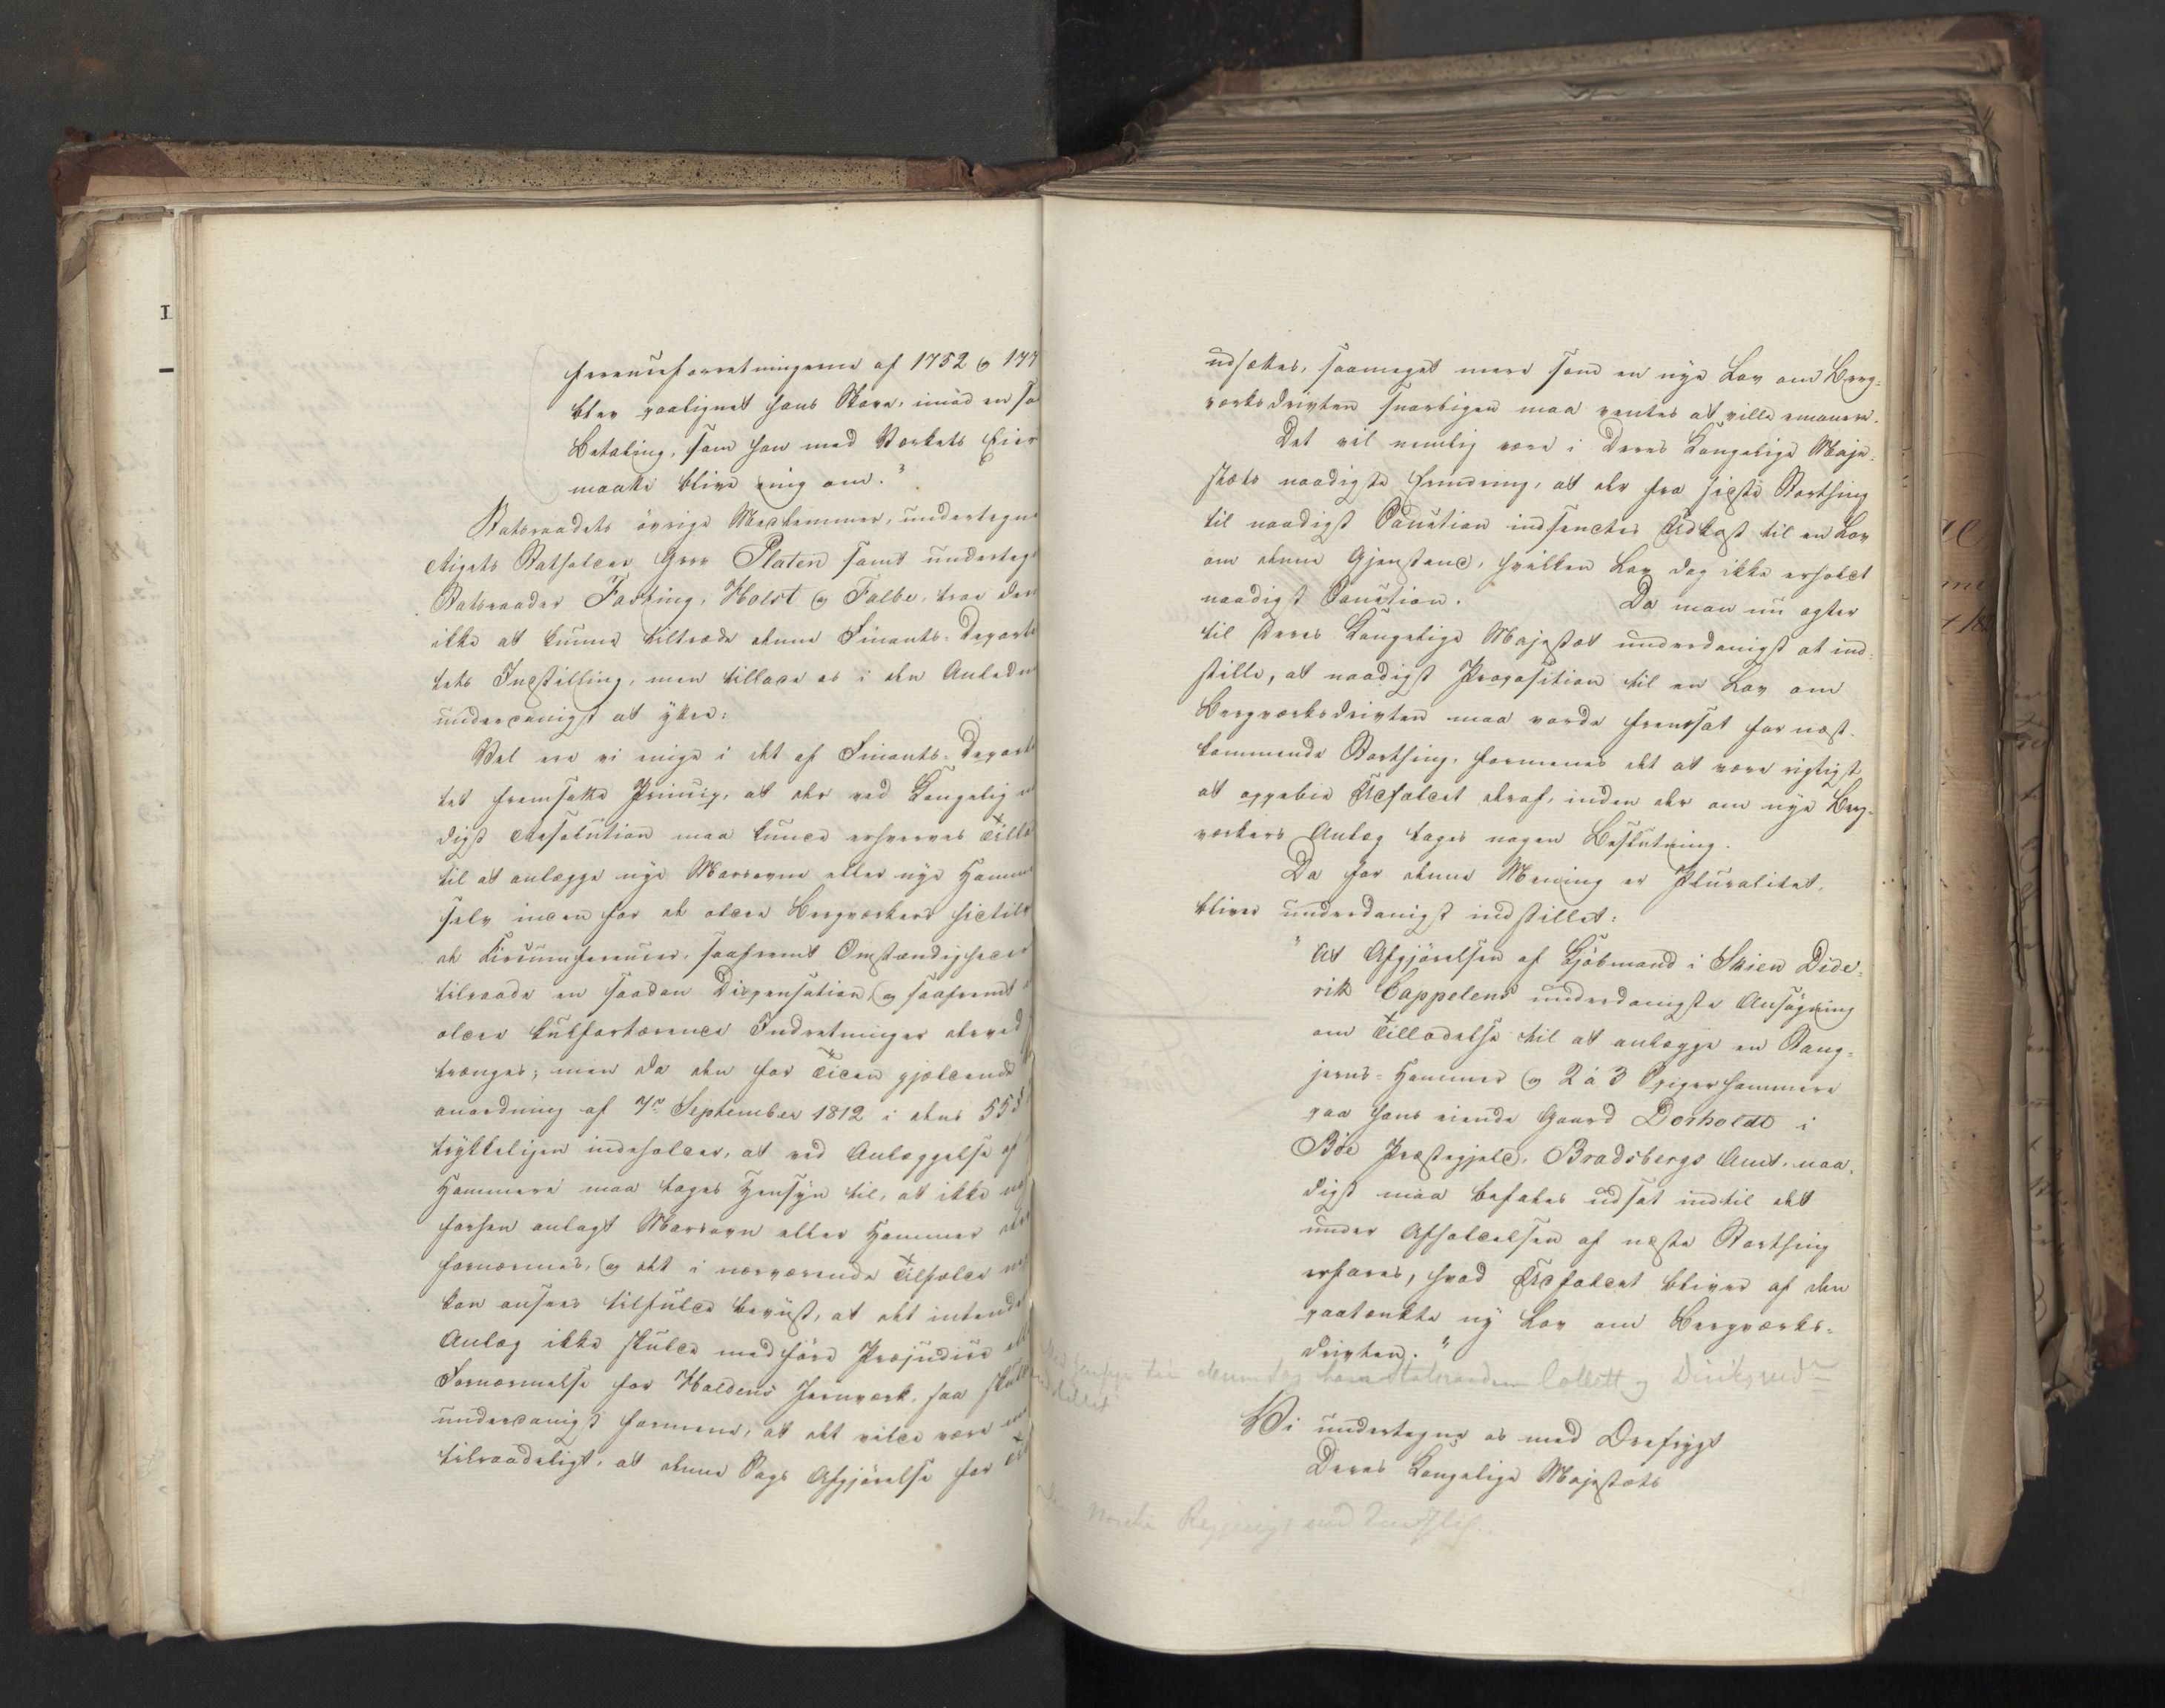 I
ferenceforretningerne af 1752 og 177
blev paalignet hans Skove, imod en sa
Betaling, som han med Værkets Eier
maatte blive enig om."
Statsraadets övrige Medlemmer, undertegne
Rigets Statholder Grev Platen samt underteg
Statsraader Fasting, Holst og Falbe, troe der
ikke at kunne tiltræde denne Finants-Departe
tets Indstilling, men tillade os i den Anledn
underdanigst at yttre:
Vel ere vi enige i det af Finants-Departe
tet fremsatte Princip, at der ved Kongelig n
digst Resolution maa kunne erhverves Tilla
til at anlægge nye Masovne eller nye Hamme
selv inden for de ældre Bergverkers hidtilv
de Circumferencer, saafremt Omstændigheder
tilraade en saadan Dispensation, og saafremt
ældre kulfortærende Indretninger derved
trænges; men da den for Tiden gjældende
anordning af 7de September 1812 i dens 55 §
trykkeligen indeholder, at ved Anlæggelse af
Hammere maa tages Hensyn til, at ikke no
forhen anlagt Masovn eller Hammer der
fornærmes, og det i nærværende Tilfælde ne
kan ansees tilfulde beviist, at det intende
Anlæg ikke skulde medføre Præjudice el
Fornærmelse for Holdens Jernværk, saa skull
underdanigst formene, at det vilde være me
tilraadeligt, at denne Sags Afgjörelse for Ti
udsættes, saameget mere som en nye Lov om Berg-
værksdriften snarligen maa ventes at ville emanere.
Det vil nemlig være i Deres Kongelige Maje-
stæts naadigste Erindring, at der fra sidste Storthing
til naadigst Sanction indsendtes Udkast til en Lov
om denne Gjenstand, hvilken Lov dog ikke erholdt
naadigst Sanction. Da man nu agter
til Deres Kongelige Majestæt underdanigst at ind-
stille, at naadigst Proposition til en Lov om
Bergværksdriften maa vorde fremsat for næst-
kommende Storthing, formenes det at være rigtigst
at oppebie Udfaldet deraf, inden der om nye Berg-
værkers Anlæg tages nogen Beslutning.
Da for denne Mening er Pluralitet,
bliver underdanigst indstillet:
"At Afgjörelsen af Kjöbmand i Skien Dide-
rik Cappelens underdanigste Ansögning
om Tilladelse til at anlægge en Stang-
jerns-Hammer og 2 à 3 Spigerhammere
paa hans eiende Gaard Dorholdt i
Böe Præstegjeld, Bradsbergs Amt, naa-
digst maa befales udsat indtil det
under Afholdelsen af næste Storthing
erfares, hvad Udfaldet bliver af den
paatænkte ny Lov om Bergværks-
driften."
Hensyn til denne Sag have Statsraaderne Collett og Diriks ved-
Vi undertegne os med Ærefrygt
Deres Kongelige Majestæts
Norske Regjerings